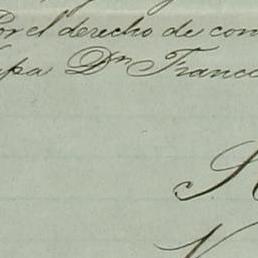 Por el derecho de com
upa Dn Franci